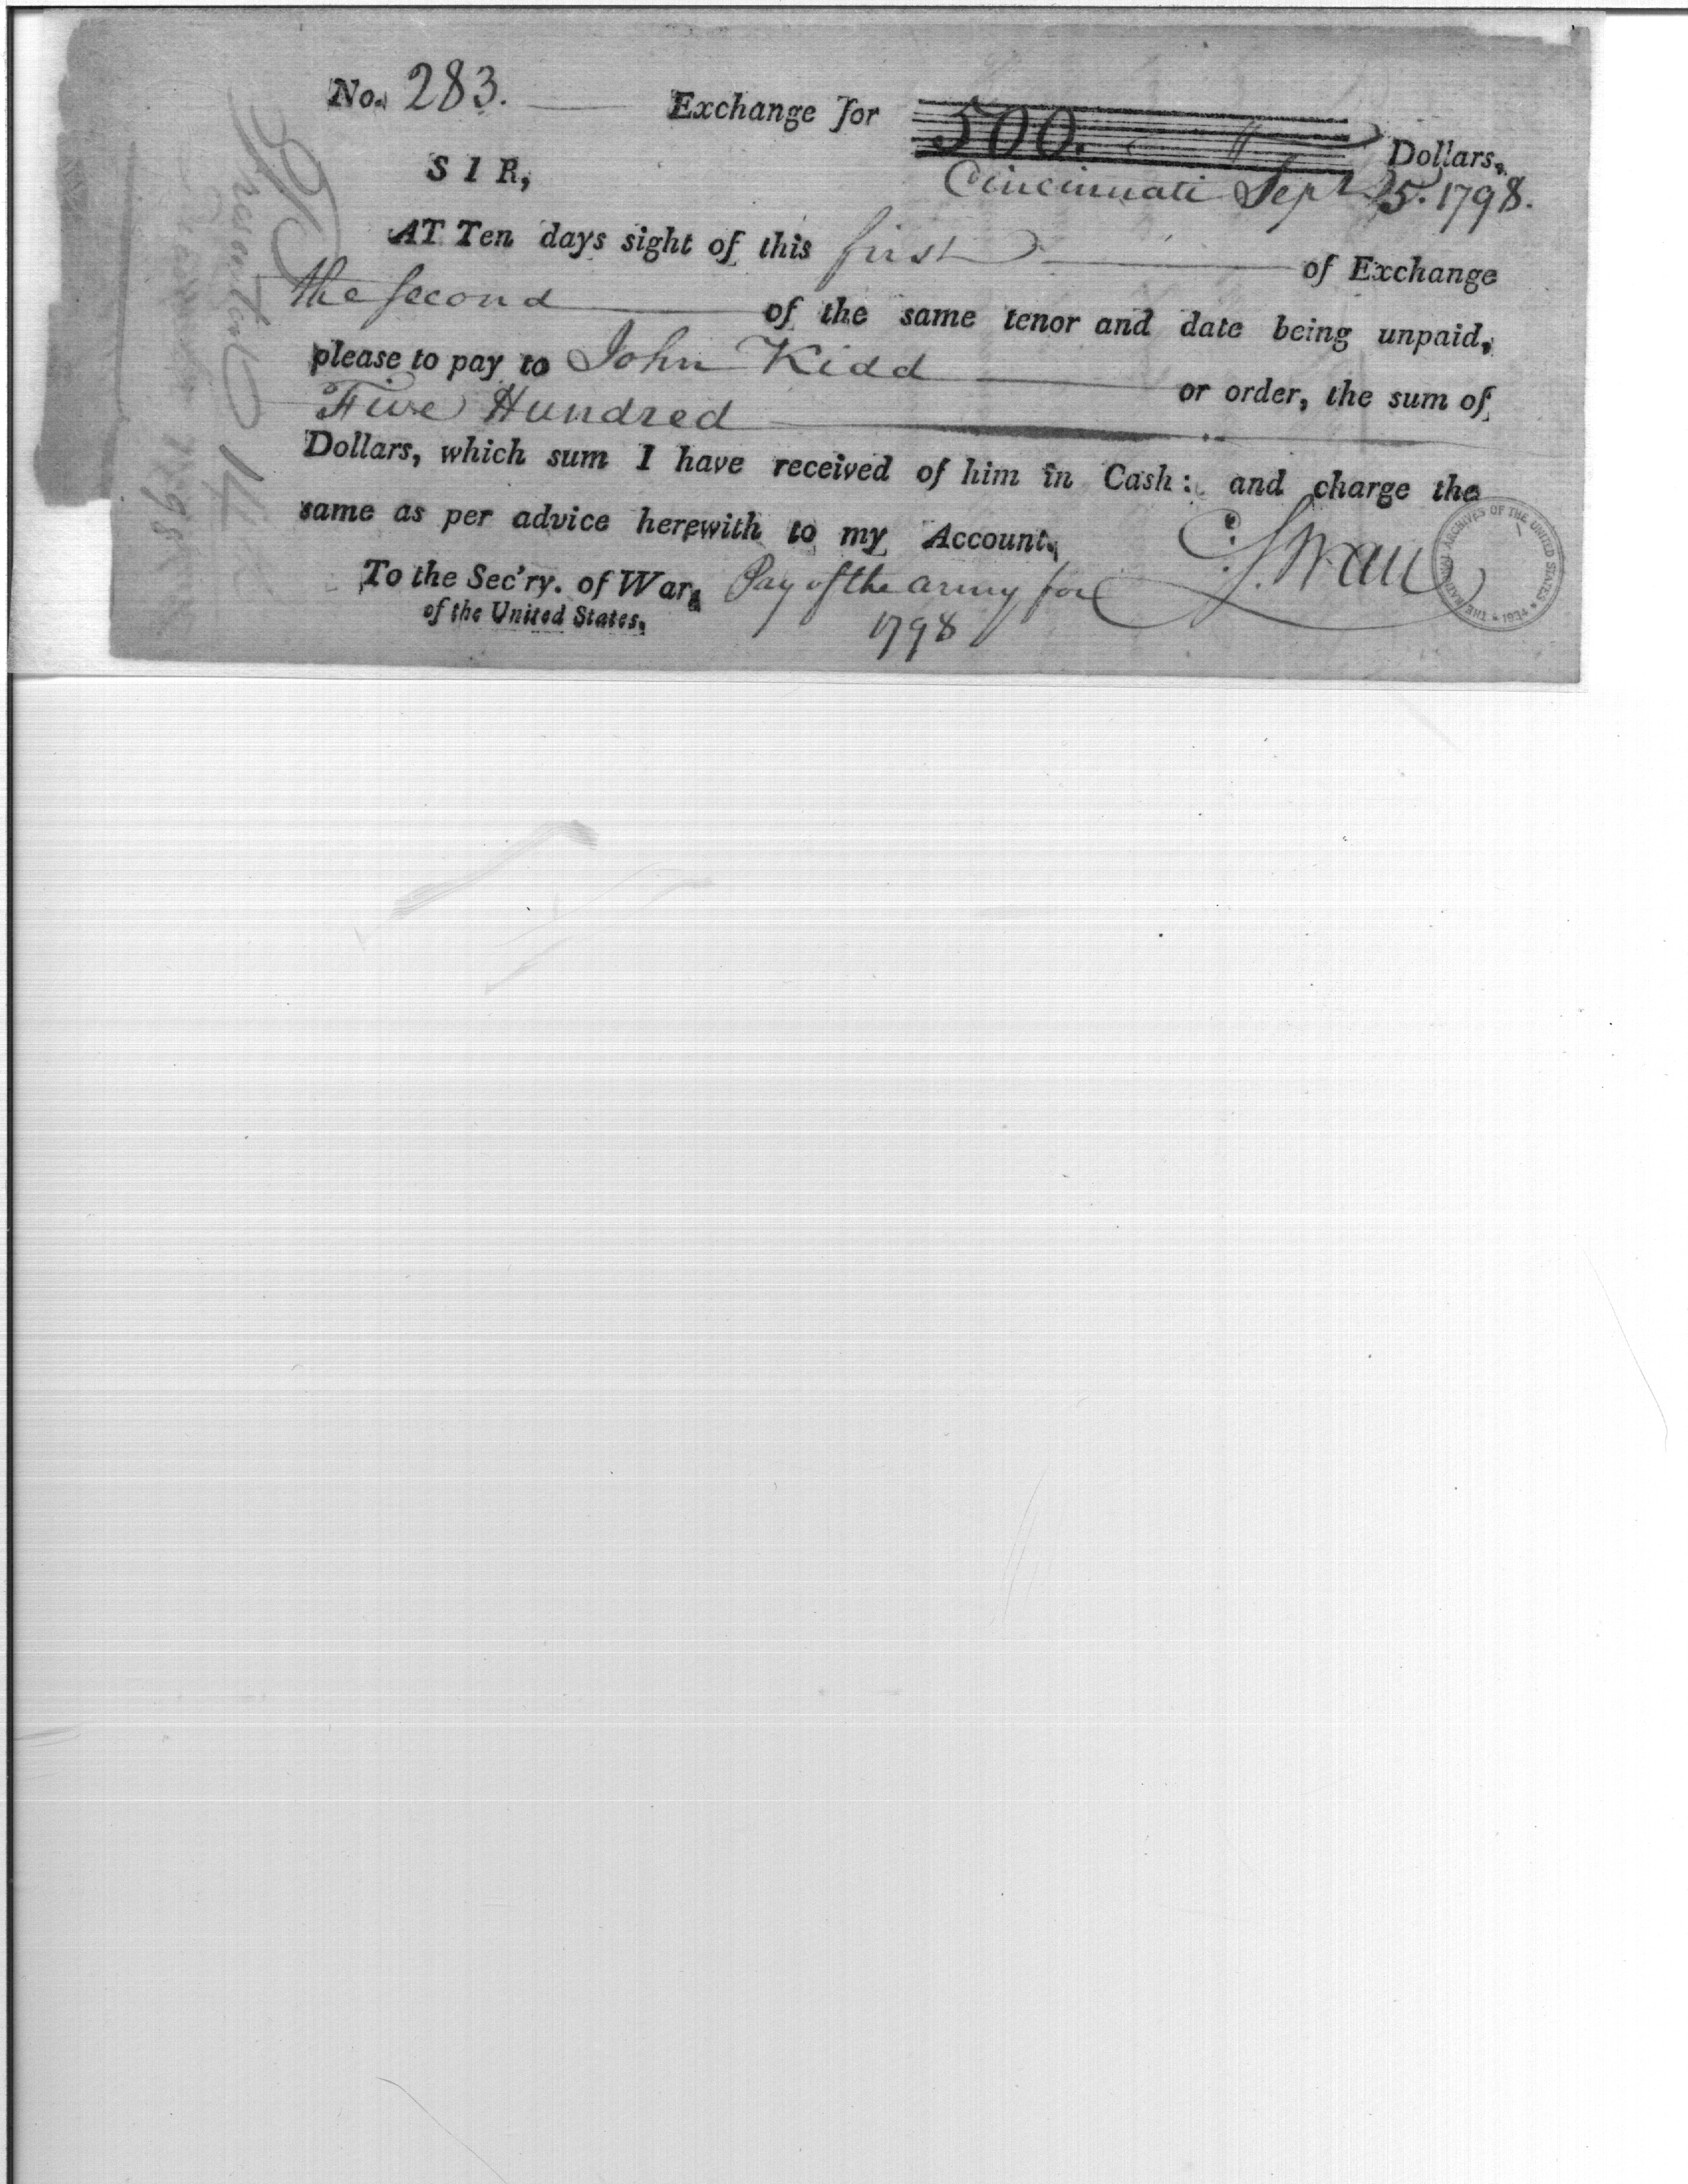 No. 283. Exchange for 500. Dollars,
SIR, Cincinnati Sept 25. 1798.
AT Ten days sight of this first of Exchange
the second of the same tenor and date being unpaid,
please to pay to John Kidd or order, the sum of
Five Hundred
Dollars, which sum I have received of him in Cash: and charge the
same as per advice herewith to my Account.
To the Sec'ry. of War, Pay of the army for C. Swan
of the United States. 1798
THE NATIONAL ARCHIVES OF THE UNITED STATES * 1934 *